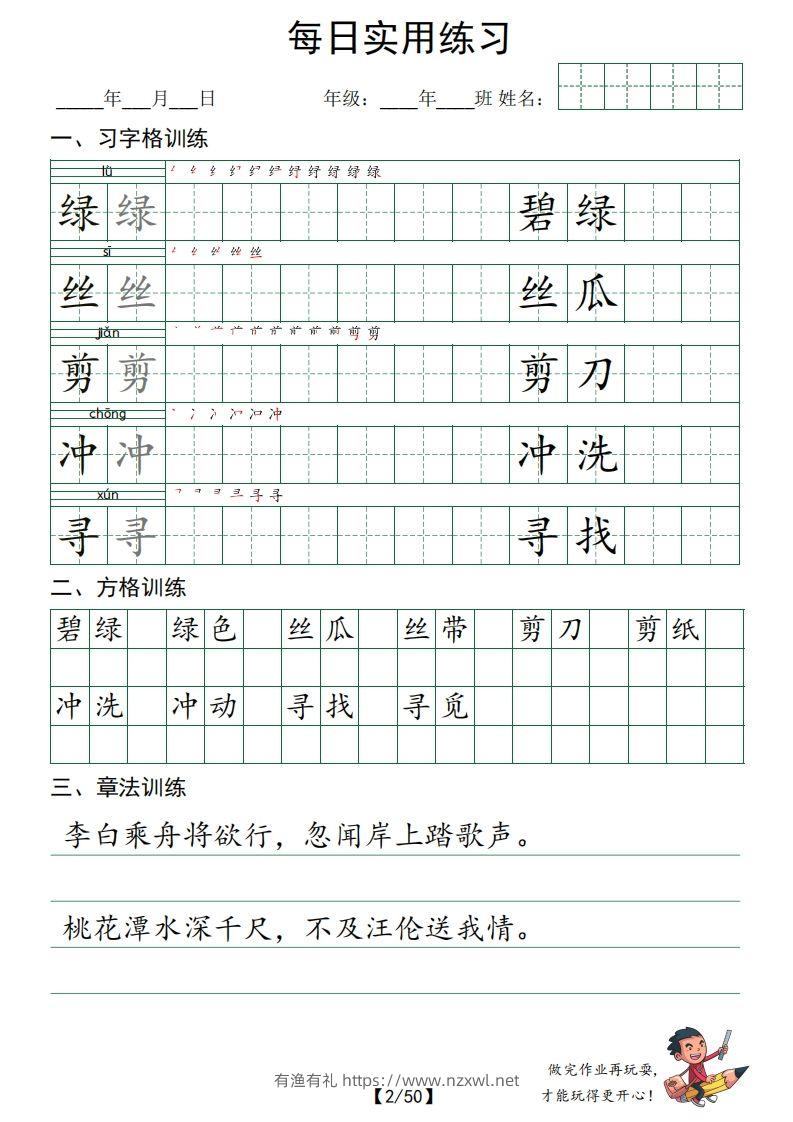 每日实用练习
_____年___月___日 年级：____年____班 姓名：
一、习字格训练
lǜ
绿 绿 碧 绿
sī
丝 丝 丝 瓜
jiǎn
剪 剪 剪 刀
chōng
冲 冲 冲 洗
xún
寻 寻 寻 找
二、方格训练
碧绿 绿色 丝瓜 丝带 剪刀 剪纸
冲洗 冲动 寻找 寻觅
三、章法训练
李白乘舟将欲行，忽闻岸上踏歌声。
桃花潭水深千尺，不及汪伦送我情。
做完作业再玩耍，
才能玩得更开心！
有渔有礼 https://www.nzxwl.net
【2/50】